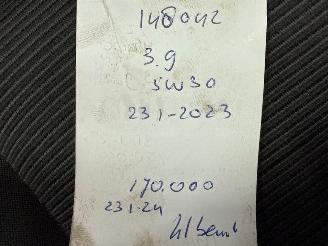 148042
3.9
5W30
23 1-2023
170.000
23 1-24